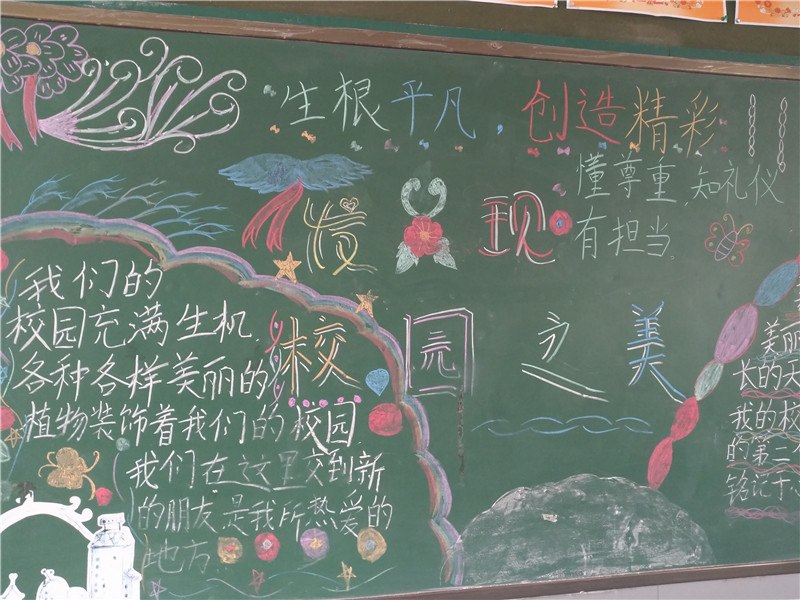 生根平凡，创造精彩
懂尊重，知礼仪
有担当
发现
校园之美
我们的
校园充满生机，
各种各样美丽的
植物装饰着我们的校园，
我们在这里交到新
的朋友，是我所热爱的
地方
美丽
长的天
我的校
的第二个
铭记于心